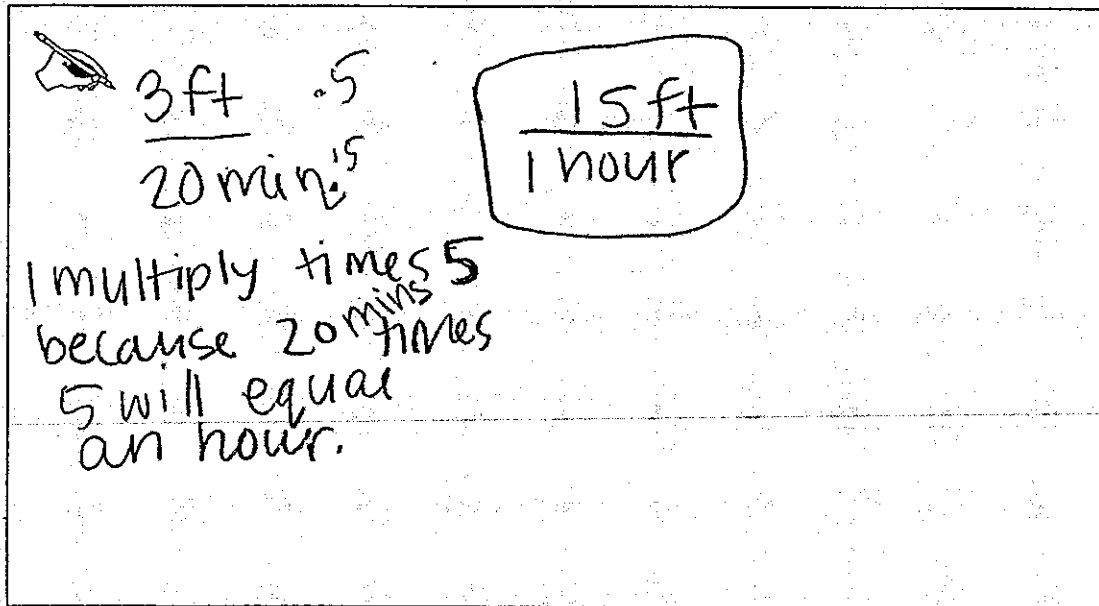 3ft .5
20 min. .5
15ft
1 hour
I multiply times 5
because 20 mins times
5 will equal
an hour.